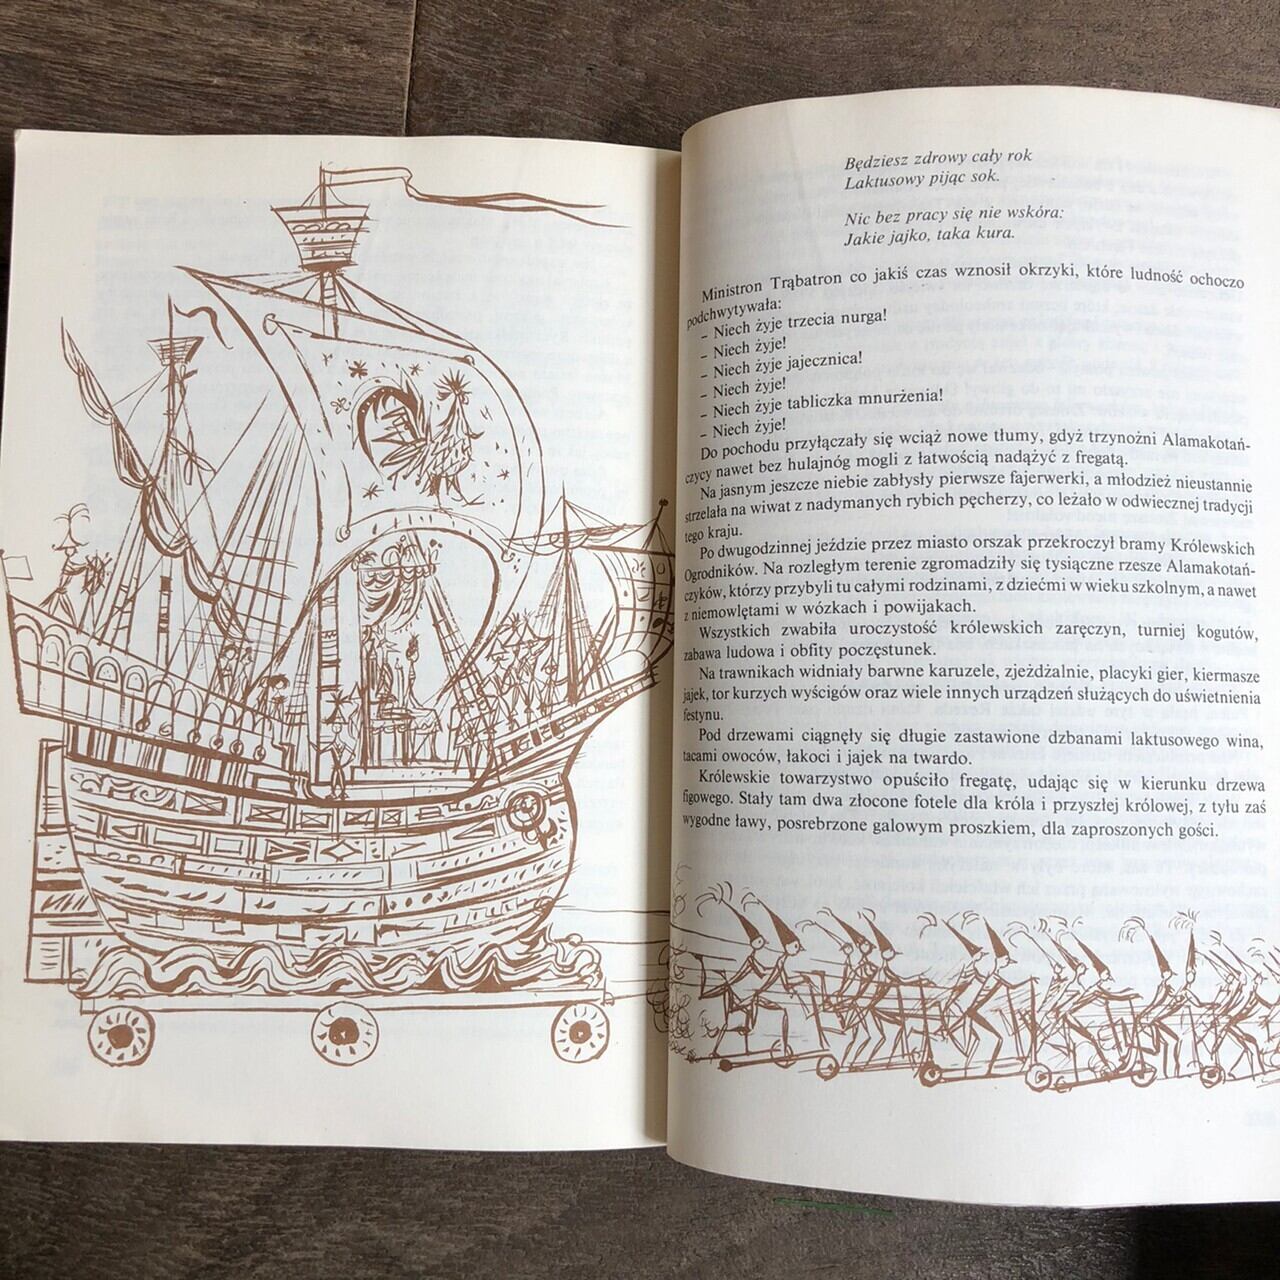 Będziesz zdrowy cały rok
Laktusowy pijąc sok.
Nic bez pracy się nie wskóra:
Jakie jajko, taka kura.
Ministron Trąbatron co jakiś czas wznosił okrzyki, które ludność ochoczo
podchwytywała:
– Niech żyje trzecia nurga!
– Niech żyje!
– Niech żyje jajecznica!
– Niech żyje!
– Niech żyje tabliczka mnurżenia!
– Niech żyje!
Do pochodu przyłączały się wciąż nowe tłumy, gdyż trzynożni Alamakotań-
czycy nawet bez hulajnóg mogli z łatwością nadążyć z fregatą.
Na jasnym jeszcze niebie zabłysły pierwsze fajerwerki, a młodzież nieustannie
strzelała na wiwat z nadymanych rybich pęcherzy, co leżało w odwiecznej tradycji
tego kraju.
Po dwugodzinnej jeździe przez miasto orszak przekroczył bramy Królewskich
Ogrodników. Na rozległym terenie zgromadziły się tysiączne rzesze Alamakotań-
czyków, którzy przybyli tu całymi rodzinami, z dziećmi w wieku szkolnym, a nawet
z niemowlętami w wózkach i powijakach.
Wszystkich zwabiła uroczystość królewskich zaręczyn, turniej kogutów,
zabawa ludowa i obfity poczęstunek.
Na trawnikach widniały barwne karuzele, zjeżdżalnie, placyki gier, kiermasze
jajek, tor kurzych wyścigów oraz wiele innych urządzeń służących do uświetnienia
festynu.
Pod drzewami ciągnęły się długie zastawione dzbanami laktusowego wina,
tacami owoców, łakoci i jajek na twardo.
Królewskie towarzystwo opuściło fregatę, udając się w kierunku drzewa
figowego. Stały tam dwa złocone fotele dla króla i przyszłej królowej, z tyłu zaś
wygodne ławy, posrebrzone galowym proszkiem, dla zaproszonych gości.